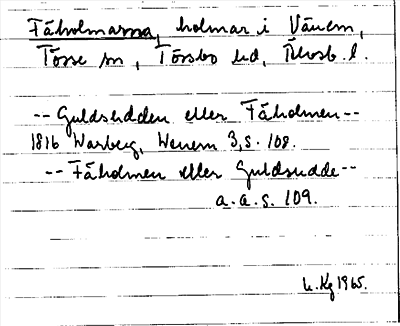 Fåholmarna, holmar i Vänern,
Tösse sn, Tössbo hd, Älvsb. l.
-- Guldsudden eller Fåholmen --
1816 Warberg, Wenern 3, s. 108.
-- Fåholmen eller Guldsudde --
a.a.s. 109.
1965.